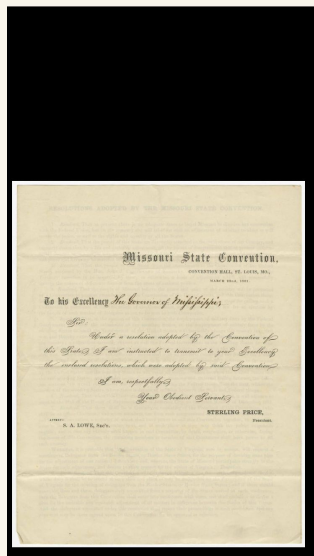 Missouri State Convention,
CONVENTION HALL, ST. LOUIS, MO.,
To his Excellency The Governor of Mississippi,
Sir:
Under a resolution adopted by the Convention of
this State, I am instructed to transmit to your Excellency
the enclosed resolutions, which were adopted by said Convention.
I am, respectfully,
Your Obedient Servant,
STERLING PRICE,
President.
ATTEST:
S. A. LOWE, Sec'y.